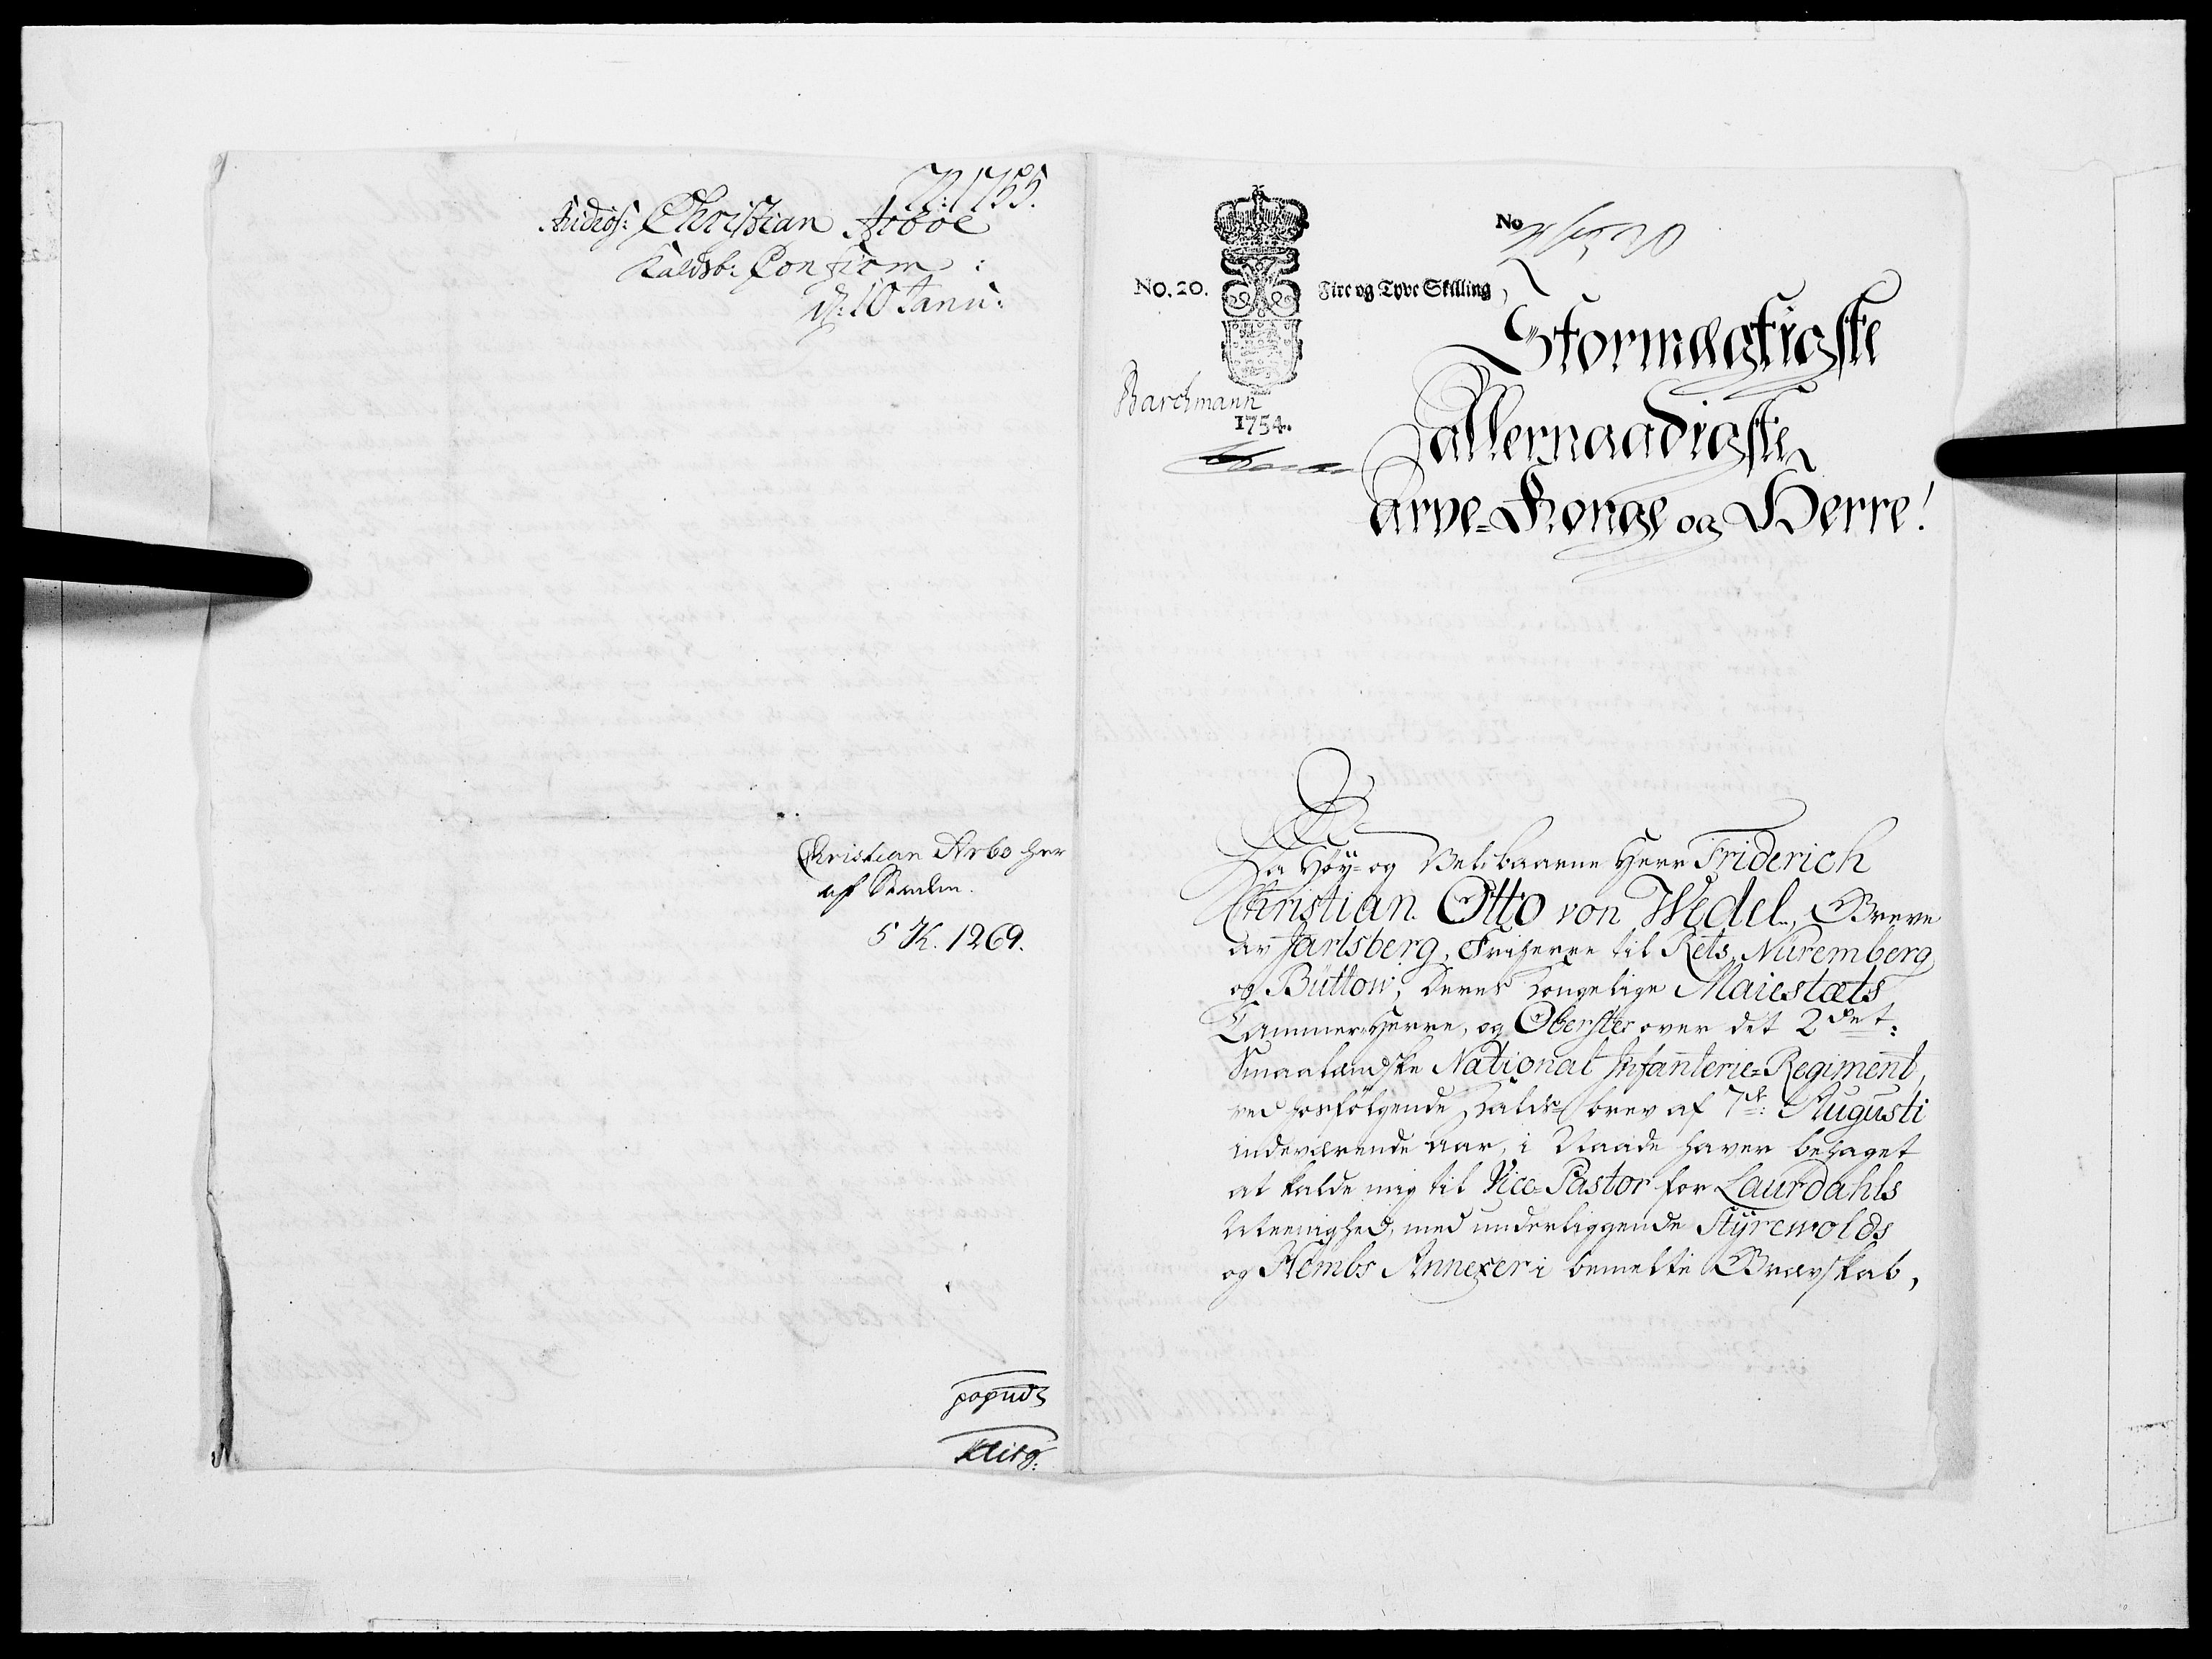 N: 1755.
Christian Arboe
Kaldsb: Confirm:
d: 10 Janu:
Christian Arbo her
af Staden.
5 K. 1269.
No
No. 20.
Fire og Tyve Skilling
Barchmann
1754.
Stormægtigste
Allernaadigste
Arve-Konge og Herre!
Da Høy- og Velbaarne Herr Friderich
Christian Otto von Wedel, Greve
av Jarlsberg, Friherre til Rets, Nuremberg
og Büttow, Deres Kongelige Maiestæts
Cammer-Herre, og Oberster over det 2det
Smaalendske National Infanterie-Regiment,
ved hosfølgende Kalds-brev af 7de: Augusti
indeværende Aar, i Naade haver behaget
at kalde mig til Vice-Pastor for Laurdahls
Meenighed, med underliggende Styrewolds
og Hembs Annexer i bemelte Grevskab,